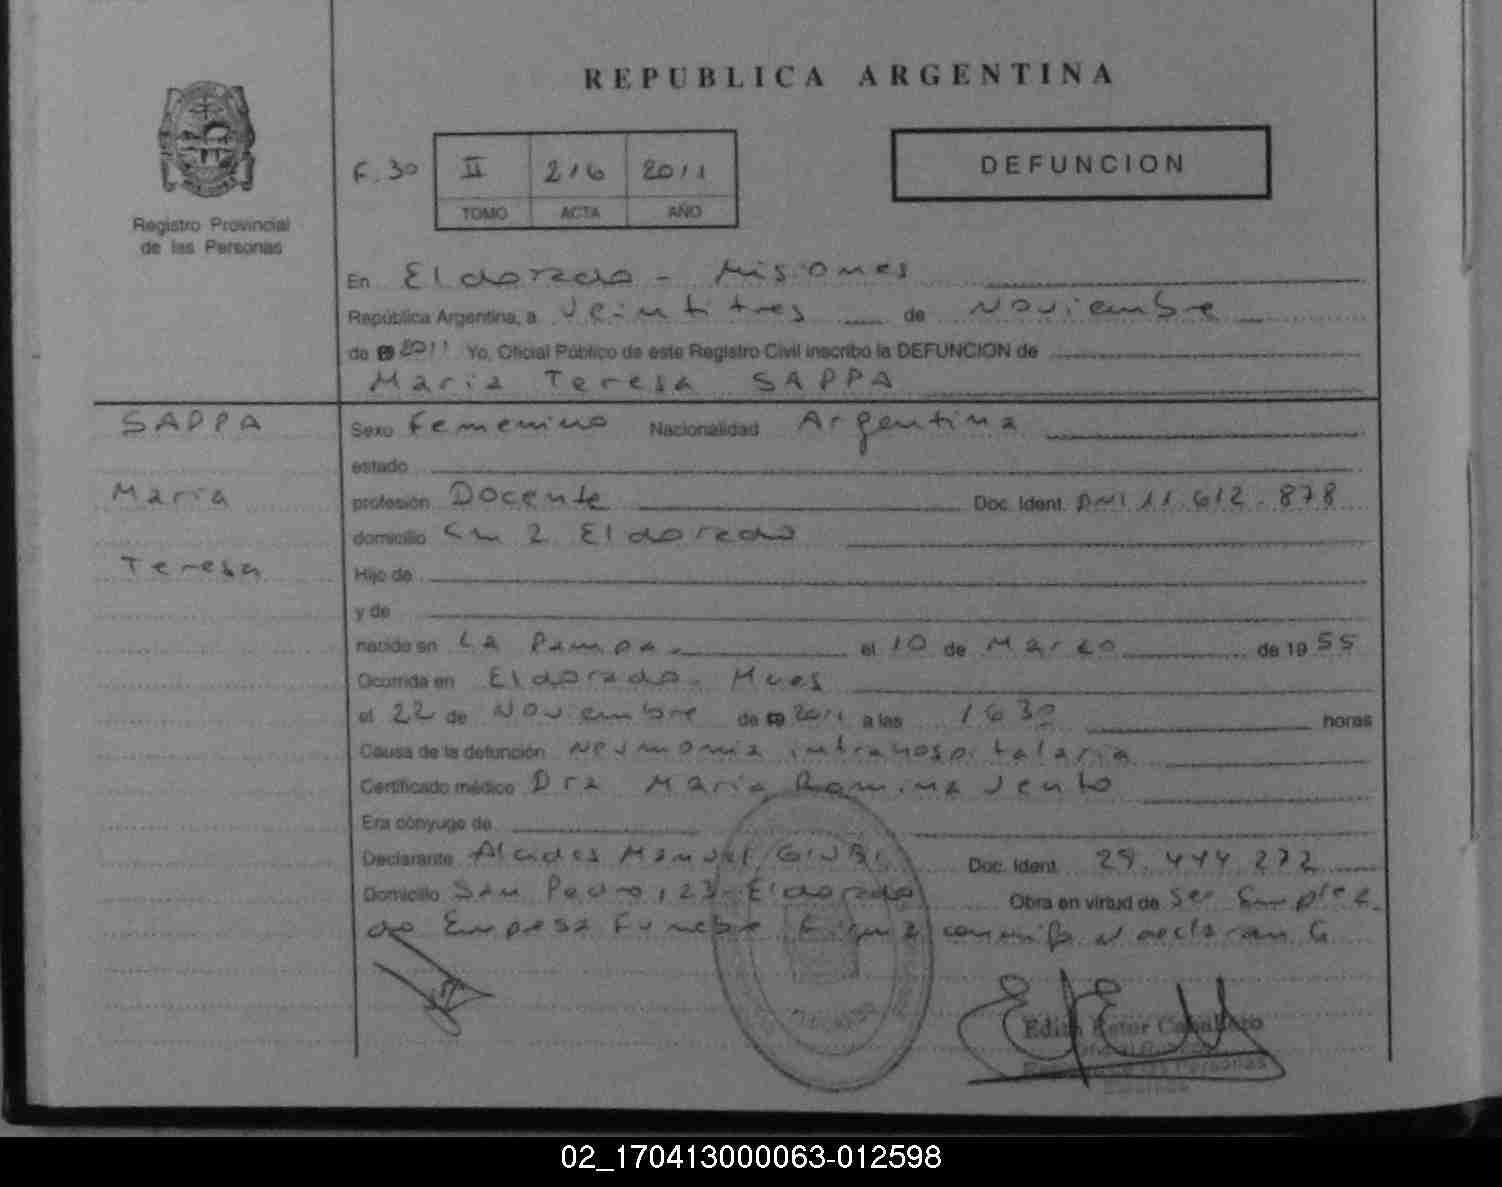 REPUBLICA ARGENTINA
F. 30 II 216 2011
TOMO ACTA AÑO
DEFUNCION
Registro Provincial
de las Personas
En Eldorado - Misiones
República Argentina, a Veintitres de Noviembre
de 2011 Yo, Oficial Público de este Registro Civil inscribo la DEFUNCION de
Maria Teresa SAPPA
SAPPA
Maria
Teresa
Sexo Femenino Nacionalidad Argentina
estado
profesión Docente Doc. Ident. DNI 11.612.878
domicilio Km 2 Eldorado
Hijo de
y de
nacido en LA Pampa el 10 de Marzo de 1955
Ocurrida en Eldorado - Mnes
el 22 de Noviembre de 2011 a las 1630 horas
Causa de la defunción Neumonia intrahospitalaria
Certificado médico Dra Maria Romina Vento
Era cónyuge de
Declarante Alcides Manuel Doc. Ident. 29.444.272
Domicilio San Pedro 123 - Eldorado Obra en virtud de Ser Emplea
do Empresa Funebre Firma conmigo el declarante
Edith Ester Caballero
02_170413000063-012598